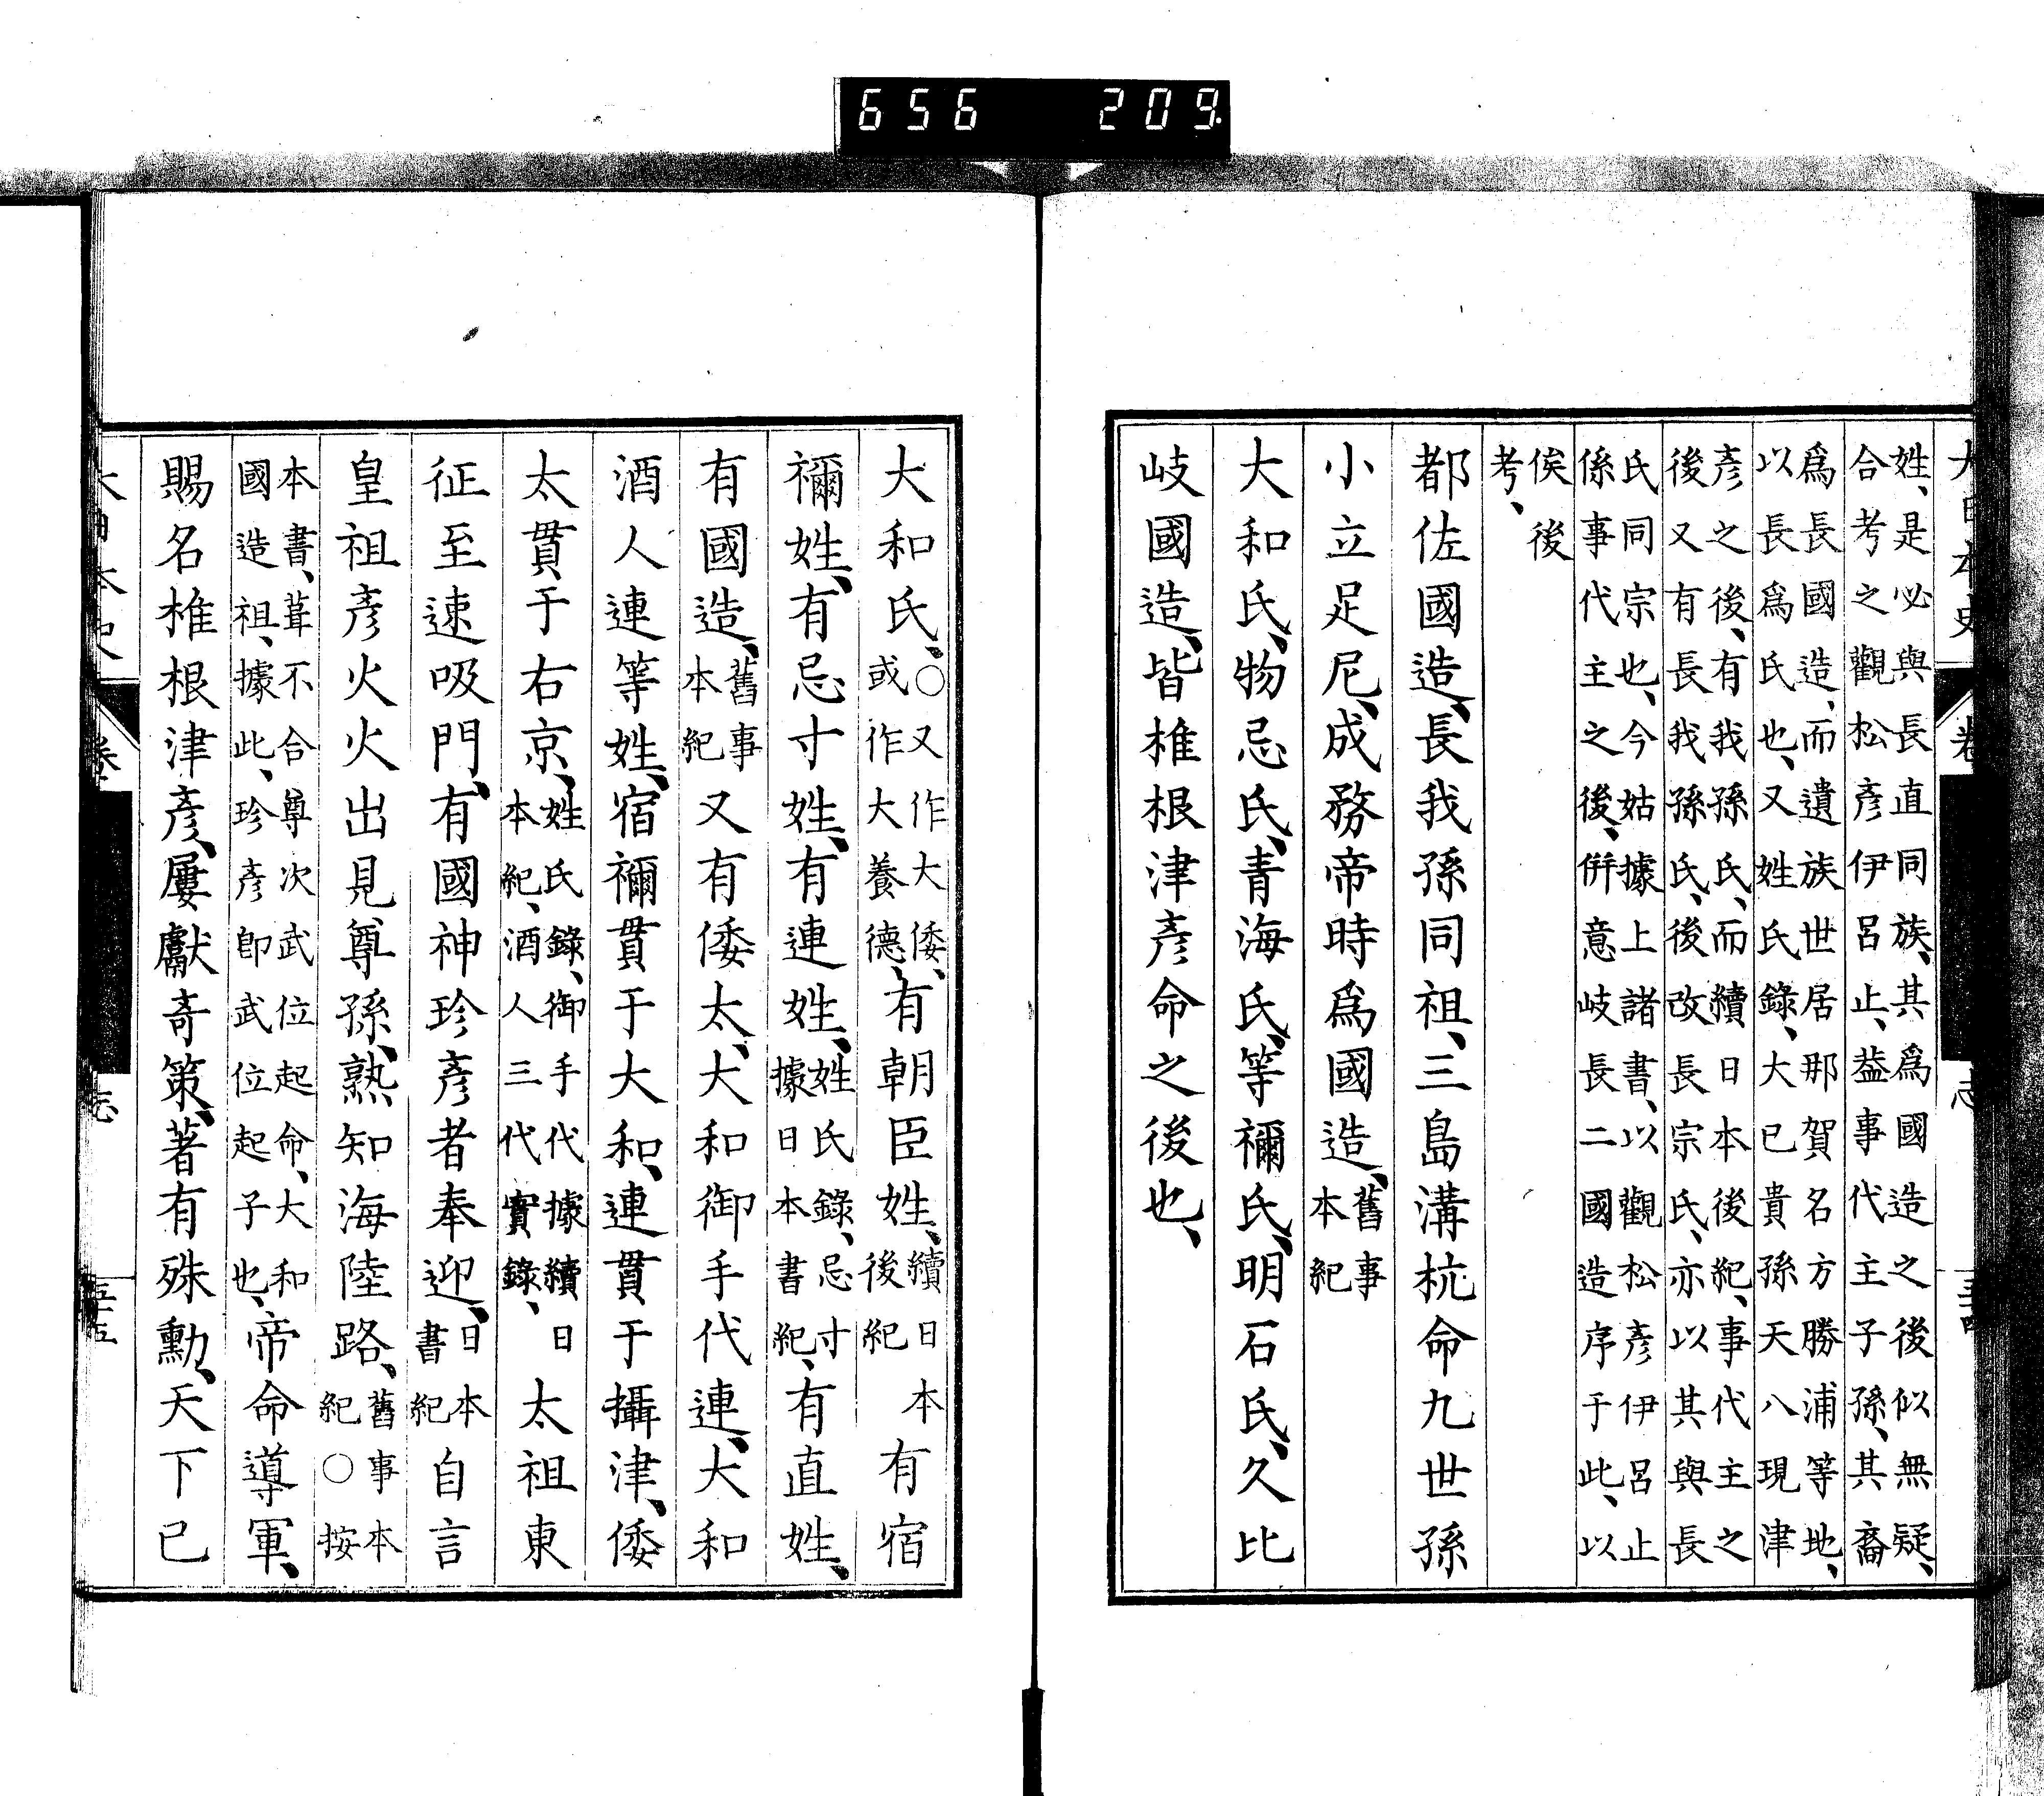 656 209
姓、是必與長直同族、其爲國造之後似無疑、
合考之觀松彥伊呂止、葢事代主子孫、其裔
爲長國造、而遺族世居那賀名方勝浦等地、
以長爲氏也、又姓氏錄、大已貴孫天八現津
彥之後、有我孫氏、而續日本後紀、事代主之
後又有長我孫氏、後改長宗氏、亦以其與長
氏同宗也、今姑據上諸書、以觀松彥伊呂止
係事代主之後、併意岐長二國造序于此、以
俟後
考、
都佐國造、長我孫同祖、三島溝杭命九世孫
小立足尼、成務帝時爲國造、舊事
本紀
大和氏、物忌氏、青海氏、等禰氏、明石氏、久比
岐國造、皆椎根津彥命之後也、
大和氏、○又作大倭、
或作大養德、有朝臣姓、續日本
後紀有宿
禰姓、有忌寸姓、有連姓、姓氏錄、忌寸
據日本書紀、有直姓、
有國造、舊事
本紀又有倭太、大和御手代連、大和
酒人連等姓、宿禰貫于大和、連貫于攝津、倭
太貫于右京、姓氏錄、御手代據續日
本紀、酒人三代實錄、太祖東
征至速吸門、有國神珍彥者奉迎、日本
書紀自言
皇祖彥火火出見尊孫、熟知海陸路、舊事本
紀○按
本書、葺不合尊次武位起命、大和
國造祖、據此、珍彥卽武位起子也、帝命導軍、
賜名椎根津彥、屢獻奇策、著有殊勳、天下已